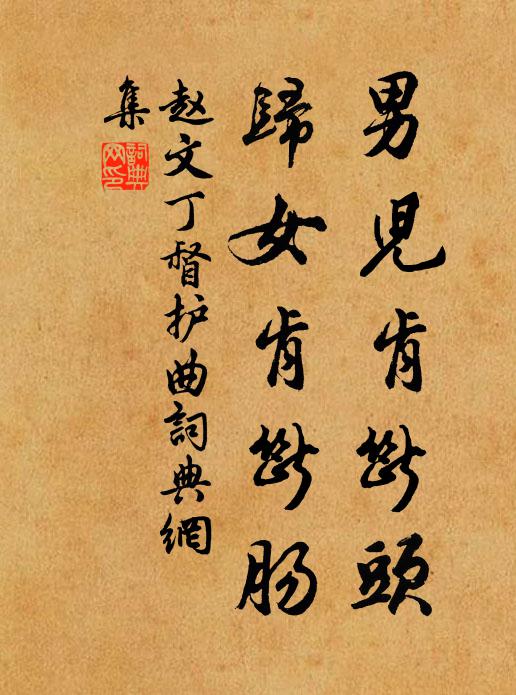 男兒肯斷頭
歸女肯斷肠
赵文丁督护曲詞典網
集
詞典網印